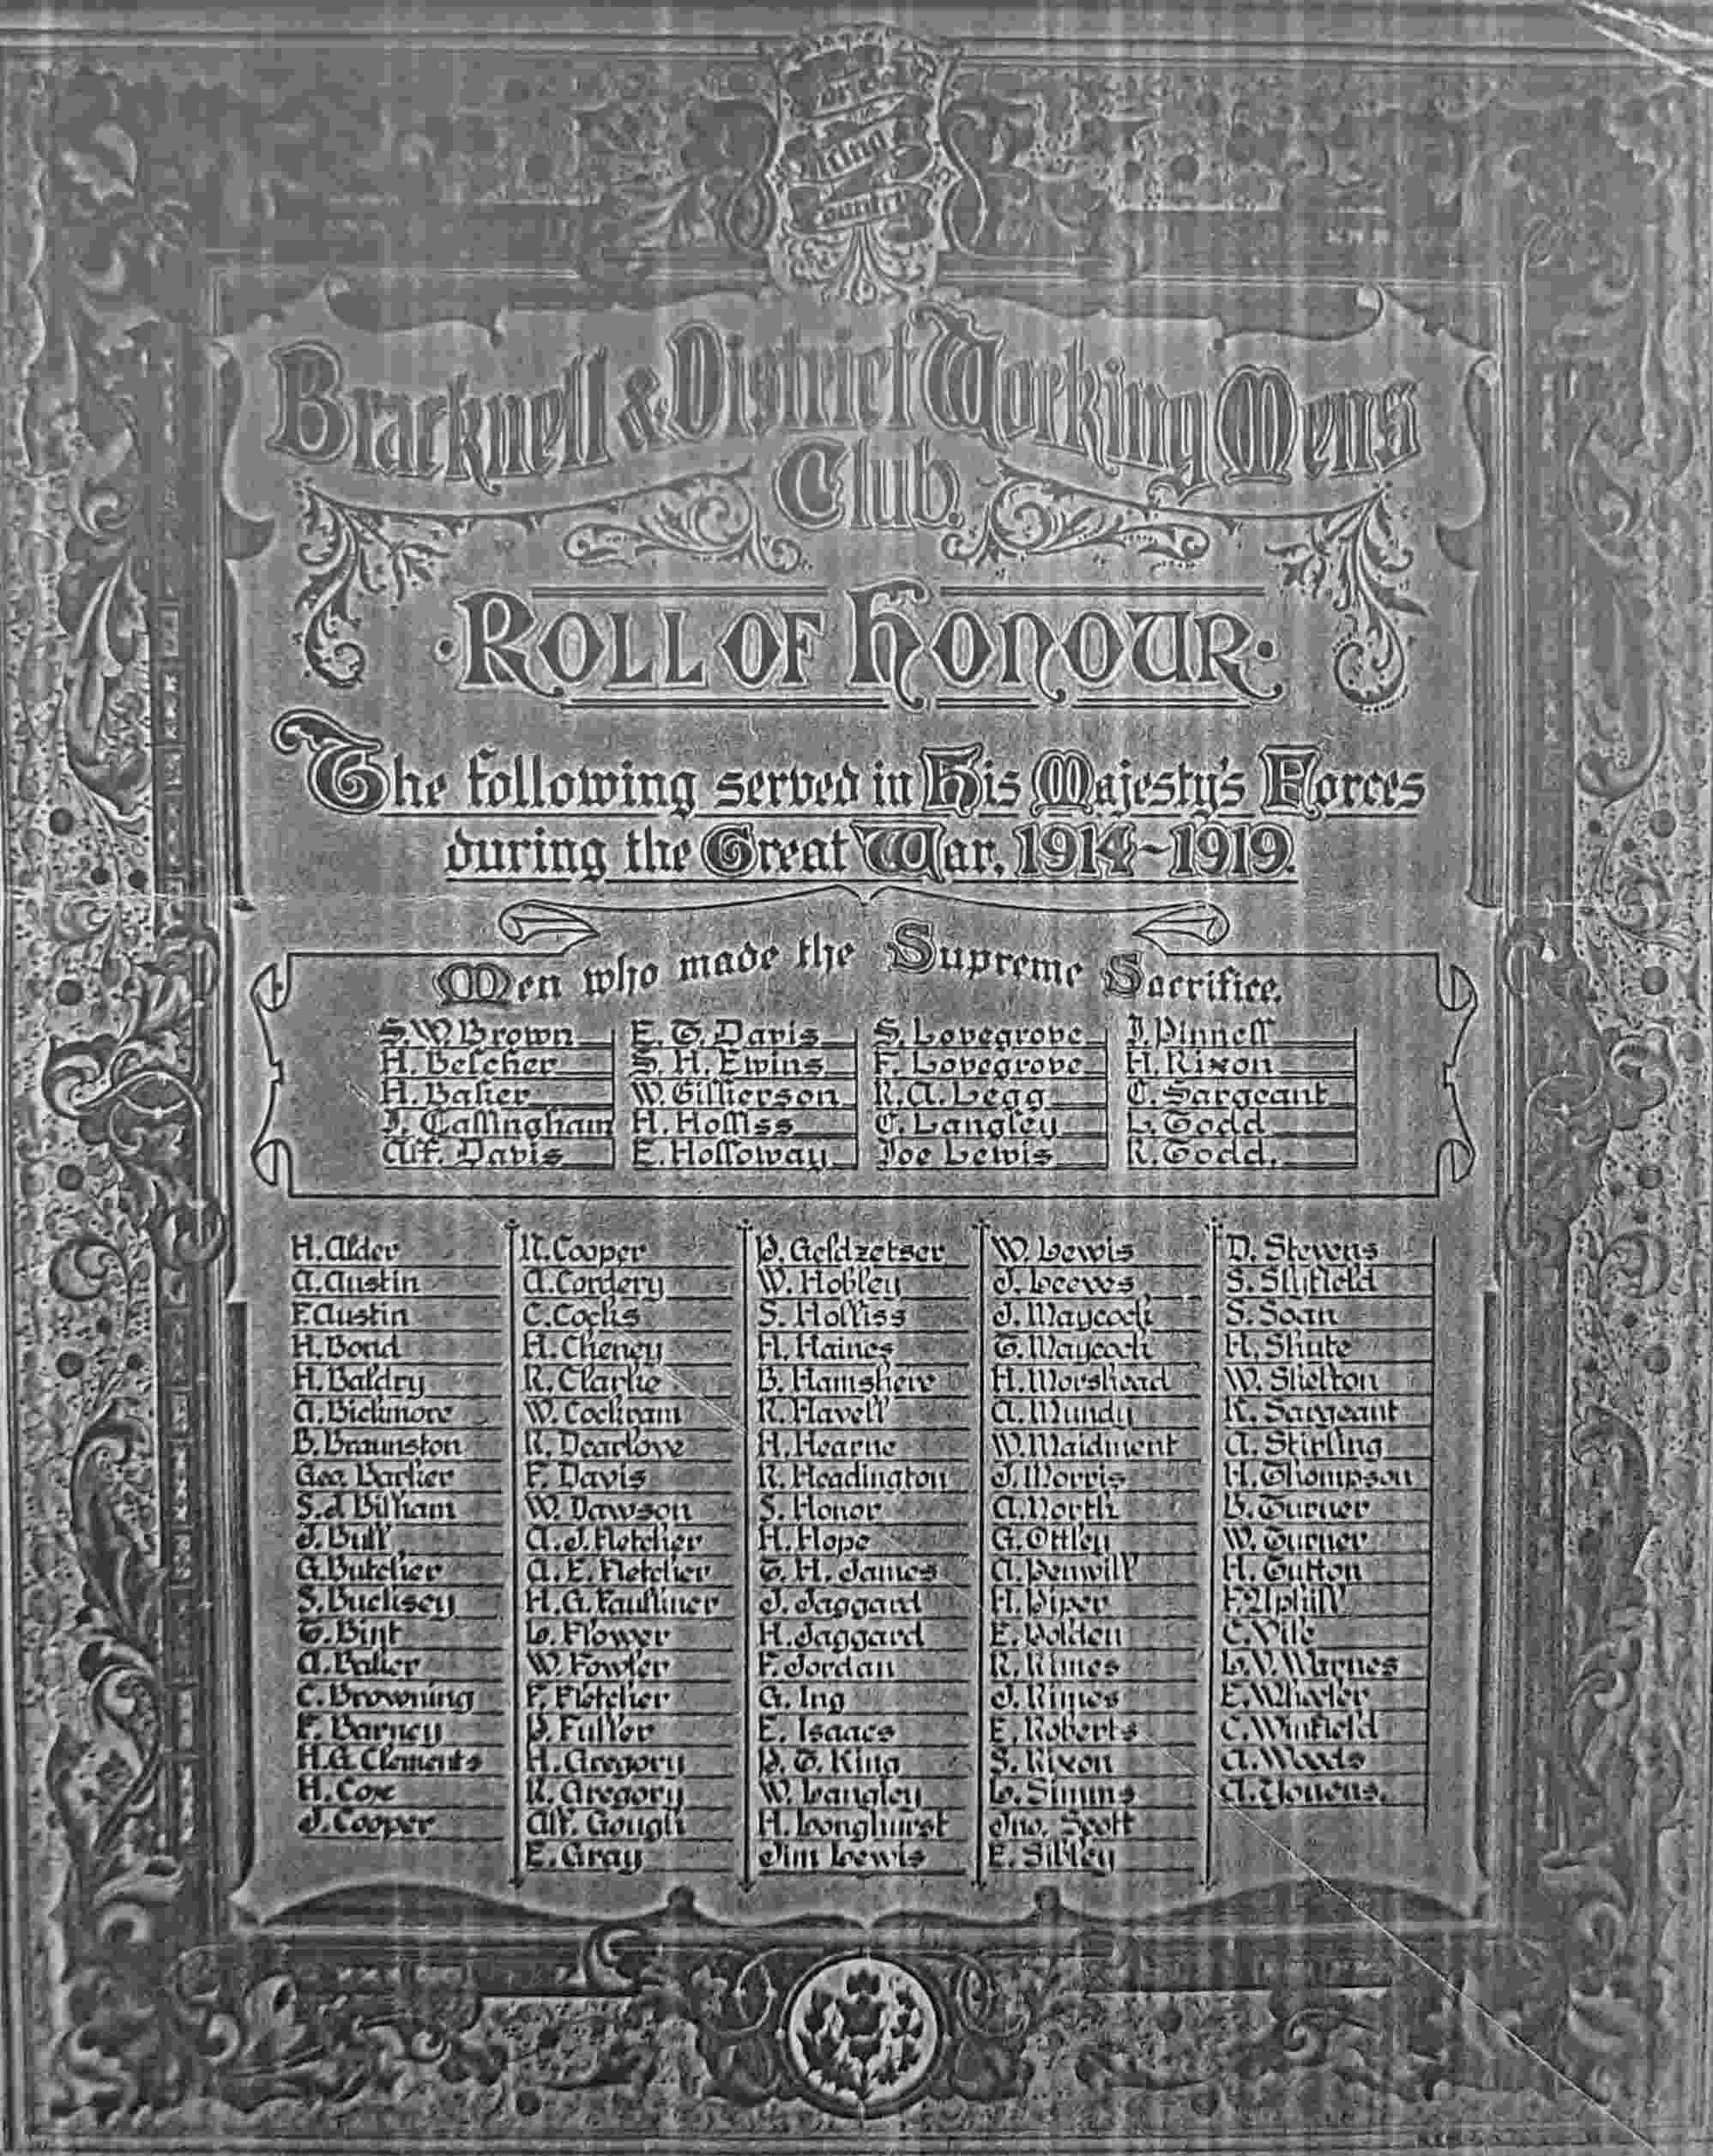 For
King
&
Country
Bracknell & District Working Mens
Club.
ROLL OF HONOUR
The following served in His Majesty's Forces
during the Great War, 1914~1919.
Men who made the Supreme Sacrifice.
S.W. Brown
H. Belcher
H. Baker
J. Callingham
Alf. Davis
E. T. Davis
S. H. Ewins
W. Gilkerson
H. Holliss
E. Holloway
S. Lovegrove
F. Lovegrove
R.A. Legg
C. Langley
Joe Lewis
J. Pinnell
H. Rixon
C. Sargeant
L. Todd
R. Todd.
H. Alder
A. Austin
F. Austin
H. Bond
H. Baldry
A. Bickmore
B. Braunston
Geo. Barker
S.J. Billiam
J. Bull
G. Butcher
S. Bucksey
T. Bint
A. Baker
C. Browning
F. Barney
H.G. Clements
H. Cox
J. Cooper
N. Cooper
A. Cordery
C. Cocks
H. Cheney
R. Clarke
W. Cockram
R. Dearlove
F. Davis
W. Dawson
A. J. Fletcher
A. E. Fletcher
H. G. Faulkner
L. Flower
W. Fowler
F. Fletcher
P. Fuller
H. Gregory
R. Gregory
Alf. Gough
E. Gray
P. Geldzetser
W. Hobley
S. Holliss
H. Haines
B. Hamshere
R. Havell
H. Hearne
R. Headington
S. Honor
H. Hope
T. H. James
J. Jaggard
H. Jaggard
F. Jordan
G. Ing
E. Isaacs
P. T. King
W. Langley
H. Longhurst
Jim Lewis
W. Lewis
J. Leeves
J. Maycock
T. Maycock
H. Morshead
A. Mundy
W. Maidment
J. Morris
A. North
G. Ottley
A. Penwill
H. Piper
E. Polden
R. Rimes
J. Rimes
E. Roberts
S. Rixon
L. Simms
Jno. Scott
E. Sibley
D. Stevens
S. Slyfield
S. Soan
H. Shute
W. Skelton
R. Sargeant
A. Stirling
H. Thompson
B. Turner
W. Turner
H. Tutton
F. Uphill
C. Vile
L.V. Warnes
E. Wheeler
C. Winfield
A. Woods
A. Youens.